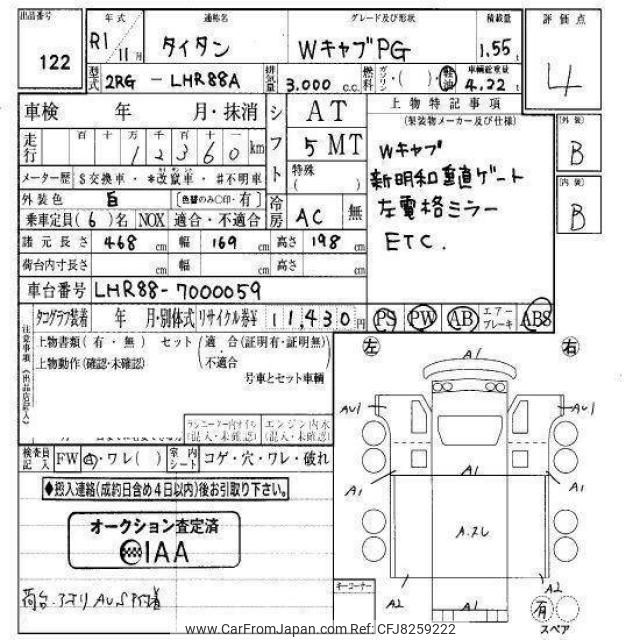 出品番号 122
年式 R1 11月
通称名 タイタン
グレード及び形状 Wキャブ PG
積載量 1.55 t
評価点 4
型式 2RG - LHR88A
排気量 3.000 c.c.
燃料 ガソリン・( ) 軽油
車輌総重量 4.22 t
車検 年 月・抹消
シフト AT 5 MT
特殊 ( )
上物特記事項
(架装物メーカー及び仕様)
走行 百 十 万 千 百 十 一 1 2 3 6 0 km
Wキャブ
新明和垂直ゲート
左電格ミラー
ETC.
外装 B
内装 B
メーター歴 $交換車・*改竄車・#不明車
外装色 白 [色替のみ○印・有]
冷房 AC 無
乗車定員(6)名 NOX 適合・不適合
諸元長さ 468 cm 幅 169 cm 高さ 198 cm
荷台内寸長さ cm 幅 cm 高さ cm
車台番号 LHR88-7000059
タコグラフ装着 年 月・別体式 リサイクル券¥ 11,430円
PS PW AB エアーブレーキ ABS
注意事項(出品店記入)
上物書類(有・無) セット(適合(証明有・証明無)
上物動作(確認・未確認) 不適合
号車とセット車輌
左 右
A1
AU1 AU1
A1 A1 A1
A2 A2
A1
ラジエーター内オイル (混入・未確認)
エンジン内水 (混入・未確認)
検査員記入 FW A・ワレ( ) 室内シート コゲ・穴・ワレ・破れ
◆搬入連絡(成約日含め4日以内)後お引取り下さい。
オークション査定済
IAA
キーコーナー
有
スペア
www.CarFromJapan.com Ref: CFJ8259222